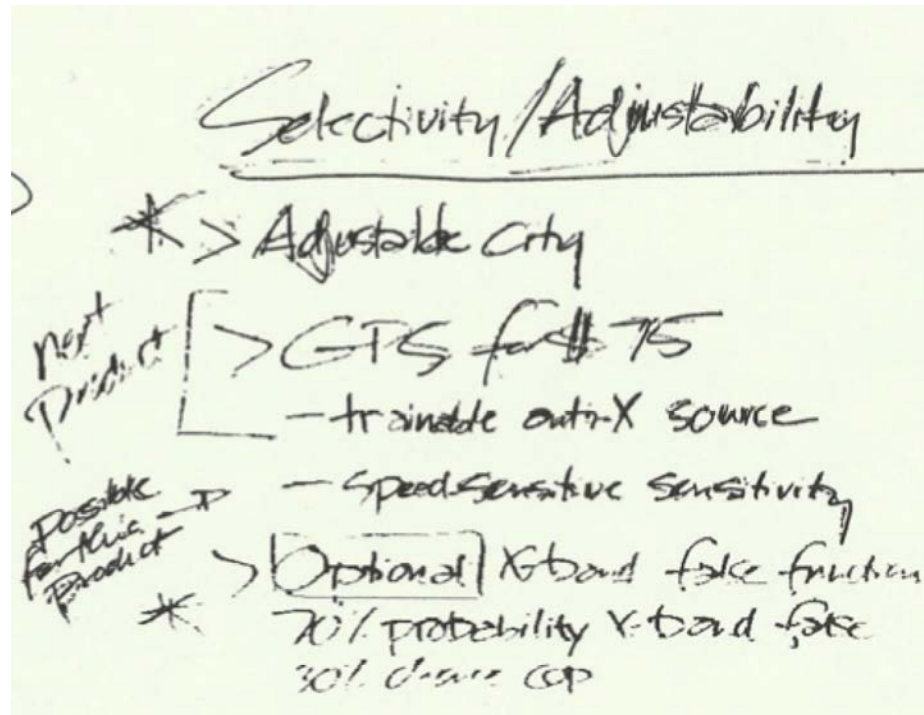 Selectivity/Adjustability
* > Adjustable City
Next
Product
> GPS for $75
- trainable anti-X source
Possible
for this
Product
- speed-sensitive sensitivity
* > Optional X-band fake function
70% probability X-band fake
30% chance cop